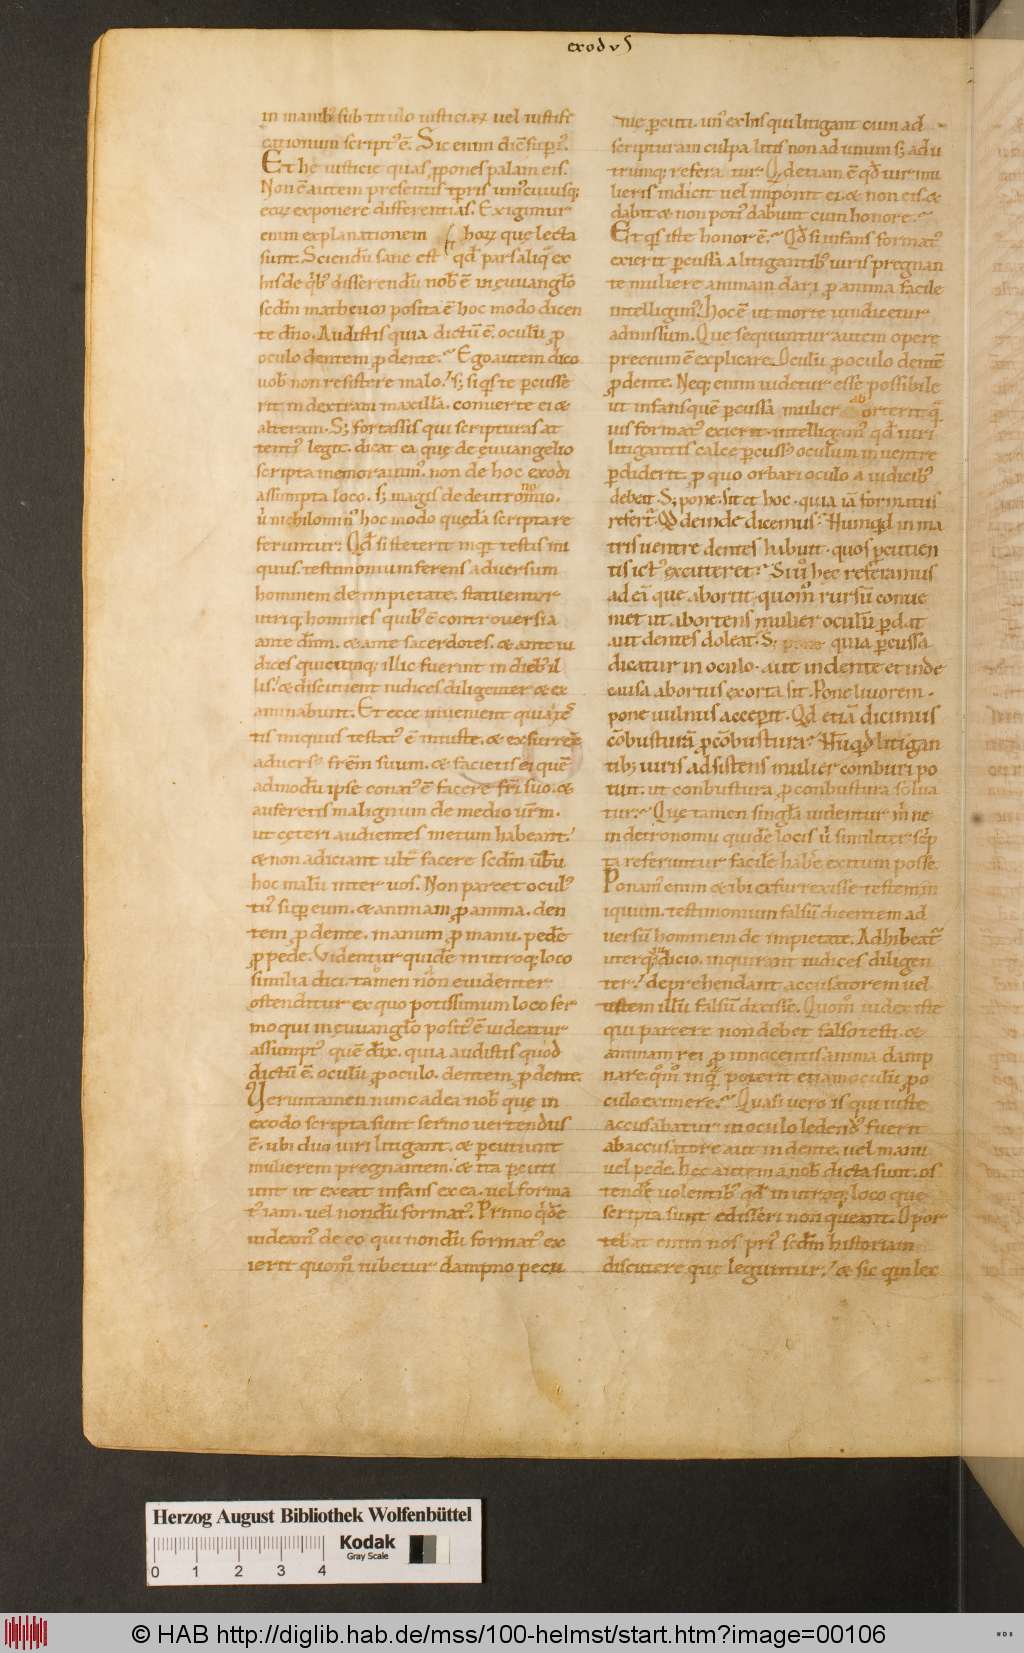 exodus
in manib; sub titulo iusticiaꝝ uel iustifi
cationum script᷒ ē. Sic enim diē sup᷒.
Et hę iusticię quas ꝓpones palam eis.
Non ē autem presentis tꝑris unicuiusq;
eaꝝ exponere differentias. Exigimur
enim explanationem hoꝝ que lecta
sunt. Sciendū sane est qd pars aliq̄ ex
his de q̇b᷒ disserendū nob̄ ē in ęuuanglo
scdm matheum posita ē hoc modo dicen
te dn̄o. Audistis quia dictū ē. oculū ꝓ
oculo dentem ꝓ dente. Ego autem dico
uob̄ non resistere malo. s; siqs te ꝑcusse
rit in dextram maxillā. conuerte ei &
alteram. S; fortassis qui scripturas at
tenti᷒ legit. dicat ea quę de ęuuangelio
scripta memorauim᷒. non de hoc exodi
assumpta loco. s; magis de deutronomio.
ū nichilomin᷒ hoc modo quędā scripta re
feruntur. Qd si steterit inqt testis ini
quus. testimonium ferens aduersum
hominem de impietate. statuentur
utriq; homines quib᷒ ē controuersia
ante dn̄m. & ante sacerdotes. & ante iu
dices quicunq; illic fuerint in dieb᷒ il
lis. & discutient iudices diligenter & ex
aminabunt. Et ecce inuenient quia tes
tis iniquus testat᷒ ē iniuste. & exsurrexē
aduers᷒ frēm suum. & facietis ei quē
admodū ipse conat᷒ ē facere fri suo. &
auferetis malignum de medio ur̄m.
ut cęteri audientes metum habeant.
& non adiciant ult̄ facere scdm ūbū
hoc malū inter uos. Non parcet ocul᷒
tu᷒ sup eum. & animam ꝓ anima. den
tem ꝓ dente. manum ꝓ manu. pedē
ꝓ pede. Videntur quidē in utroq; loco
similia dici. tamen nobis euidenter
ostenditur ex quo potissimum loco ser
mo qui in ęuuanglo posit᷒ ē uideatur
assumpt᷒ quē dix. quia audistis quod
dictū ē. oculū ꝓ oculo. dentem ꝓ dente.
Ueruntamen nunc ad ea nob̄ quę in
exodo scripta sunt sermo uertendus
ē. ubi duo uiri litigant. & ꝑcutiunt
mulierem pregnantem. & ita ꝑcuti
unt ut exeat infans ex ea. uel forma
t᷒ iam. uel nondū format᷒. Primo qdē
uideam᷒ de eo qui nondū format᷒ ex
ierit quom̄ iubetur dampno pecu
nię ꝑcuti. un᷒ ex his qui litigant cum ad
scripturam culpa litis non ad unum s; ad u
trumq; refera tur. Qd etiam ē qd uir mu
lieris indicit uel imponit ei. & non eis. &
dabit & non poti᷒ dabunt cum honore.
Et qs iste honor ē. Qd si infans format᷒
exierit ꝑcussa a litigantib᷒ uiris pregnan
te muliere animam dari ꝓ anima facile
intelligim᷒. hoc ē ut morte uindicetur
admissum. Que sequuntur autem opere
precium ē explicare. Oculū ꝓ oculo dentē
ꝓ dente. Neq; enim uidetur esse possibile
ut infans quē ꝑcussa mulier aborterit q̄
uis format᷒ exierit. intelligam᷒ qd uiri
litigantis calce ꝑcuss᷒ oculum in uentre
ꝑdiderit. ꝓ quo orbari oculo a iudicib᷒
debeat. S; pone. sit et hoc. quia iā formatus
refert. Qd deinde dicemus. Nunqd in ma
tris uentre dentes habuit. quos ꝑcutien
tis ict᷒ excuteret. Siu᷒ hec referamus
ad eā que abortit. quom̄ rursū conue
niet ut abortens mulier oculū ꝑdat
aut dentes doleat. S; pone quia ꝑcussa
dicatur in oculo. aut in dente et inde
causa abortus exorta sit. Pone liuorem.
pone uulnus acceperit. Qd etiā dicimus
cōbusturā ꝑ cōbustura. Nunqd litigan
tib; uiris adsistens mulier comburi po
tuit. ut conbustura ꝓ conbustura solua
tur. Que tamen singla uidentur m̄ ne
in detronomu quidē locis ū similiter scrip
ta referuntur facile habe exitum posse.
Ponam᷒ enim & ibi exsurrexisse testem in
iquum. testimonium falsū dicentem ad
uersū hominem de impietate. Adhibeat᷒
uterq; iudicio. inquirant iudices diligen
ter. deprehendant accusatorem uel
testem illū falsū dixisse. Quom̄ iudex iste
qui parcere non debet falso testi. &
animam rei ꝓ innocentis anima damp
nare. qm̄ inq̄ poterit etiam oculū ꝓ o
culo eximere. Quasi uero is qui iuste
accusabatur in oculo ledend᷒ fuerit
ab accusatore aut in dente. uel manu
uel pede. hec autem a nob̄ dicta sunt. os
tendē uolentib᷒ qd in utroq; loco que
scripta sunt edisseri non queant. Opor
tebat enim nos pri᷒ scdm historiam
discutere que leguntur. & sic qm̄ lex
Herzog August Bibliothek Wolfenbüttel
Kodak
Gray Scale
0 1 2 3 4
© HAB http://diglib.hab.de/mss/100-helmst/start.htm?image=00106